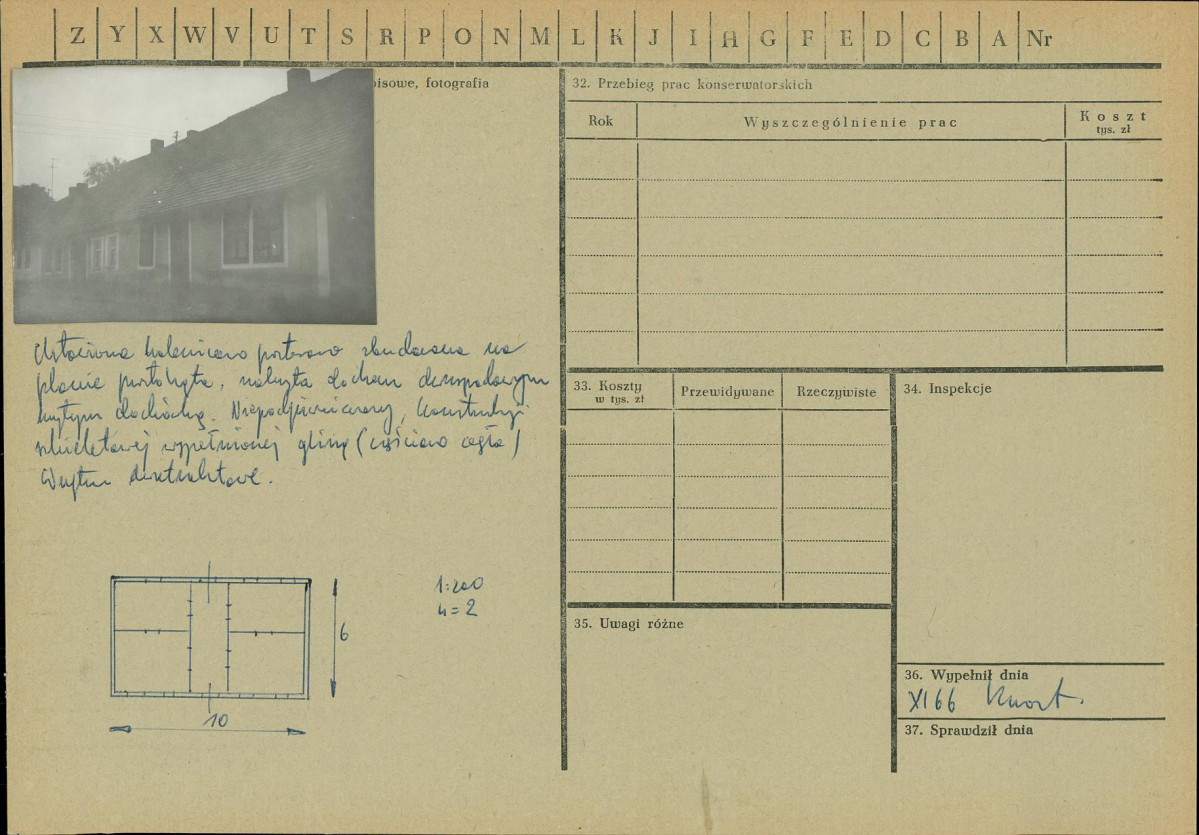 Z Y X W V U T S R P O N M L K J I H G F E D C B A Nr
isowe, fotografia
zbudowana na
planie prostokąta, nakryta dachem dwuspadowym
krytym dachówką. Niepodpiwniczony, konstrukcji
szkieletowej wypełnionej gliną (częściowo cegłą)
Wnętrze dwutraktowe.
1:200
n=2
6
10
32. Przebieg prac konserwatorskich
Rok
Wyszczególnienie prac
Koszt
tys. zł
33. Koszty
w tys. zł
Przewidywane
Rzeczywiste
34. Inspekcje
35. Uwagi różne
36. Wypełnił dnia
XI 66
37. Sprawdził dnia